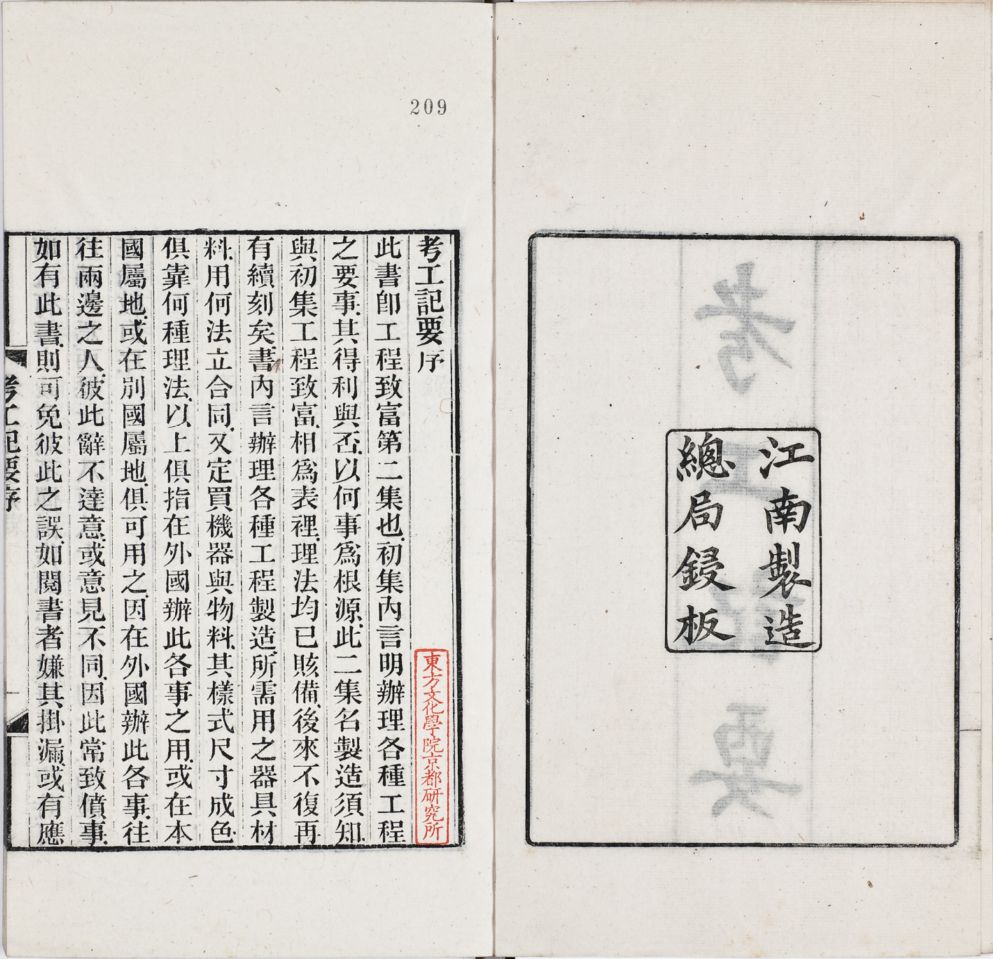 江南製造
總局鋟板
209
考工記要序
此書卽工程致富第二集也初集內言明辦理各種工程
之要事其得利與否以何事爲根源此二集名製造須知
與初集工程致富相爲表裡理法均已賅備後來不復再
有續刻矣書內言辦理各種工程製造所需用之器具材
料用何法立合同又定買機器與物料其樣式尺寸成色
俱靠何種理法以上俱指在外國辦此各事之用或在本
國屬地或在別國屬地俱可用之因在外國辦此各事往
往兩邊之人彼此辭不達意或意見不同因此常致僨事
如有此書則可免彼此之誤如閱書者嫌其掛漏或有應
考工記要序
東方文化學院京都研究所